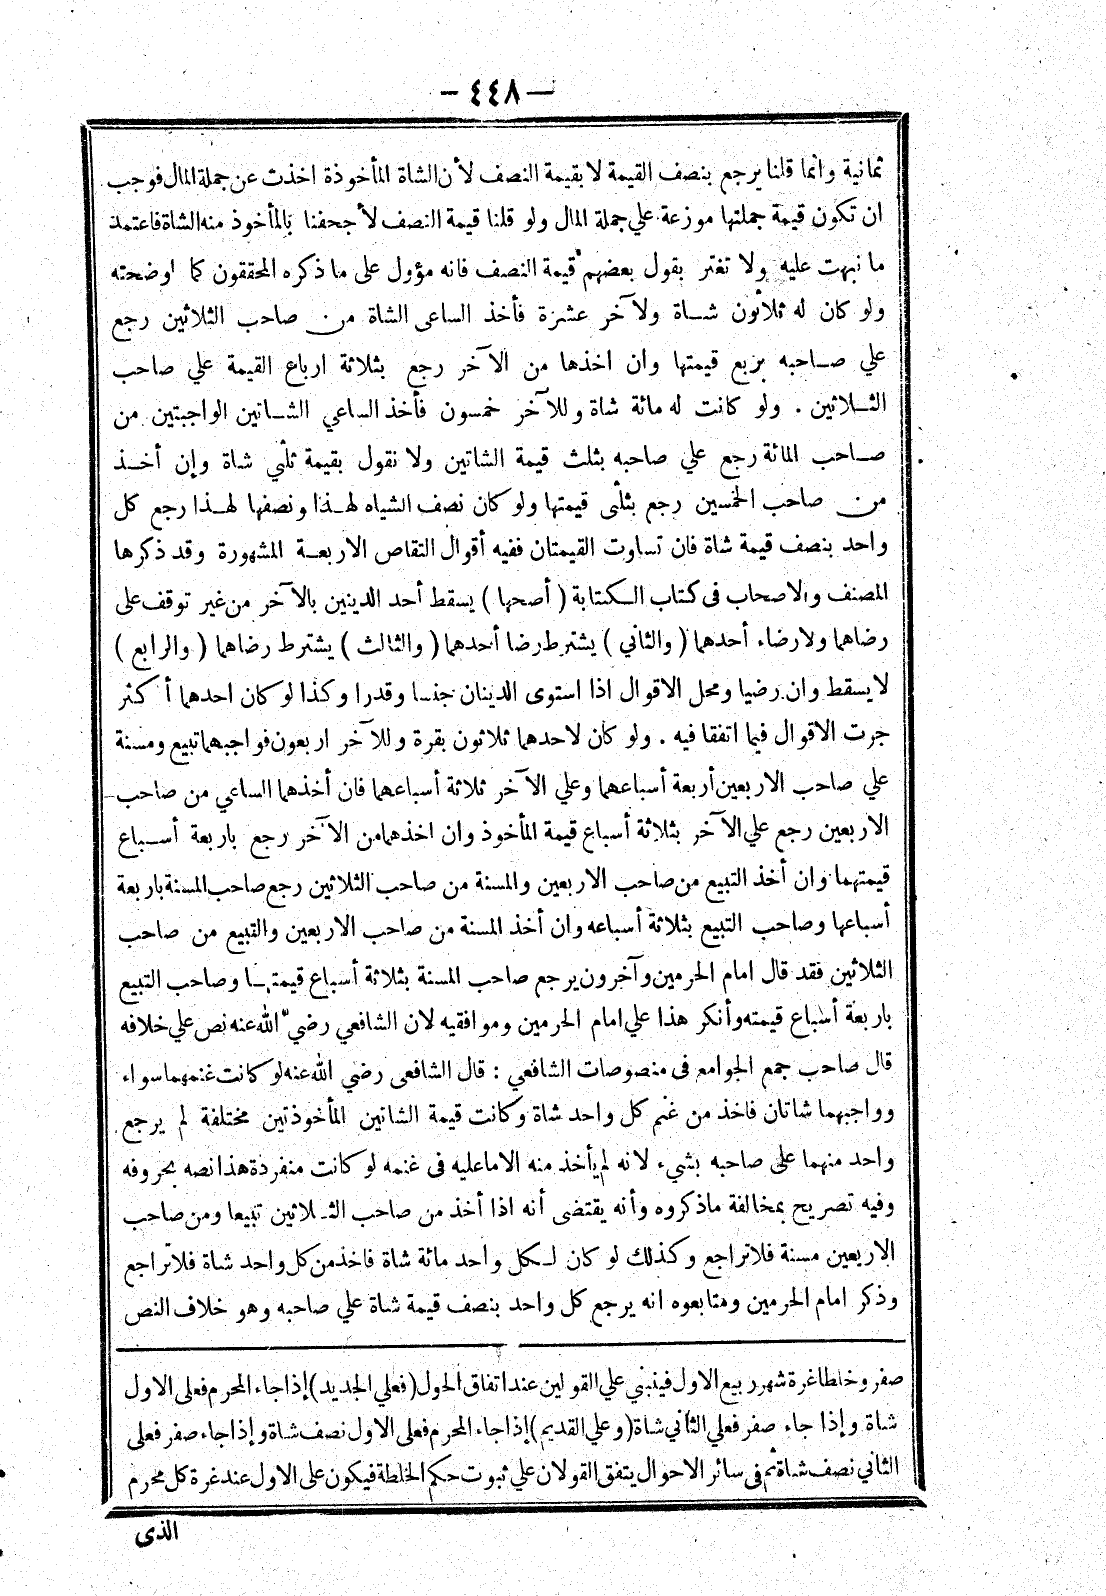 — ٤٤٨ —
ثمانية وانما قلنا يرجع بنصف القيمة لا بقيمة النصف لأن الشاة المأخوذة اخذت عن جملة المال فوجب
ان تكون قيمة جملتها موزعة علي جملة المال ولو قلنا قيمة النصف لأجحفنا بالمأخوذ منه الشاة فاعتمد
ما نبهت عليه ولا تغتر بقول بعضهم قيمة النصف فانه مؤول على ما ذكره المحققون كما اوضحته
ولو كان له ثلاثون شـاة ولآخر عشرة فأخذ الساعى الشاة من صاحب الثلاثين رجع
علي صـاحبه بربع قيمتها وان اخذها من الآخر رجع بثلاثة ارباع القيمة علي صاحب
الثـلاثين . ولو كانت له مائة شاة وللآخر خمسون فأخذ الساعي الشـاتين الواجبتين من
صـاحب المائة رجع علي صاحبه بثلث قيمة الشاتين ولا نقول بقيمة ثلثي شاة وإن أخـذ
من صاحب الخمسين رجع بثلثى قيمتها ولو كان نصف الشياه لهـذا ونصفها لهـذا رجع كل
واحد بنصف قيمة شاة فان تساوت القيمتان ففيه أقوال التقاص الاربعـة المشهورة وقد ذكرها
المصنف والاصحاب فى كتاب الـكتابة ( أصحها ) يسقط أحد الدينين بالآخر من غير توقف على
رضاهما ولارضاء أحدهما ( والثاني ) يشترط رضا أحدهما ( والثالث ) يشترط رضاهما ( والرابع )
لا يسقط وان رضيا ومحل الاقوال اذا استوى الدينان جنسا وقدرا وكذا لو كان احدهما أكثر
جرت الاقوال فيما اتفقا فيه . ولو كان لاحدهما ثلاثون بقرة وللآخر اربعون فواجبهما تبيع ومسنة
علي صاحب الاربعين أربعة أسباعهما وعلي الآخر ثلاثة أسباعهما فان أخذهما الساعي من صاحب
الاربعين رجع علي الآخر بثلاثة أسباع قيمة المأخوذ وان اخذهما من الآخر رجع باربعة أسـباع
قيمتهما وان أخذ التبيع من صاحب الاربعين والمسنة من صاحب الثلاثين رجع صاحب المسنة باربعة
أسباعها وصاحب التبيع بثلاثة أسباعه وان أخذ المسنة من صاحب الاربعين والتبيع من صاحب
الثلاثين فقد قال امام الحرمين وآخرون يرجع صاحب المسنة بثلاثة أسباع قيمتهـا وصاحب التبيع
باربعة أسباع قيمته وأنكر هذا علي امام الحرمين وموافقيه لان الشافعي رضي الله عنه نص علي خلافه
قال صاحب جمع الجوامع فى منصوصات الشافعي : قال الشافعى رضي الله عنه لو كانت غنمهما سواء
وواجبهما شاتان فاخذ من غنم كل واحد شاة وكانت قيمة الشاتين المأخوذتين مختلفة لم يرجع
واحد منهما على صاحبه بشيء لانه لم يأخذ منه الا ما عليه فى غنمه لو كانت منفردة هذا نصه بحروفه
وفيه تصريح بمخالفة ماذكروه وأنه يقتضى أنه اذا أخذ من صاحب الثـلاثين تبيعا ومن صاحب
الاربعين مسنة فلا تراجع وكذلك لو كان لـكل واحد مائة شاة فاخذ من كل واحد شاة فلا تراجع
وذكر امام الحرمين ومتابعوه انه يرجع كل واحد بنصف قيمة شاة علي صاحبه وهو خلاف النص
صفر وخلطا غرة شهر ربيع الاول فينبني علي القولين عند اتفاق الحول (فعلي الجديد) إذا جاء المحرم فعلى الاول
شاة وإذا جاء صفر فعلي الثاني شاة (وعلي القديم) إذا جاء المحرم فعلى الاول نصف شاة وإذا جاء صفر فعلى
الثاني نصف شاة ثم فى سائر الاحوال يتفق القولان علي ثبوت حكم الخلطة فيكون على الاول عند غرة كل محرم
الذى